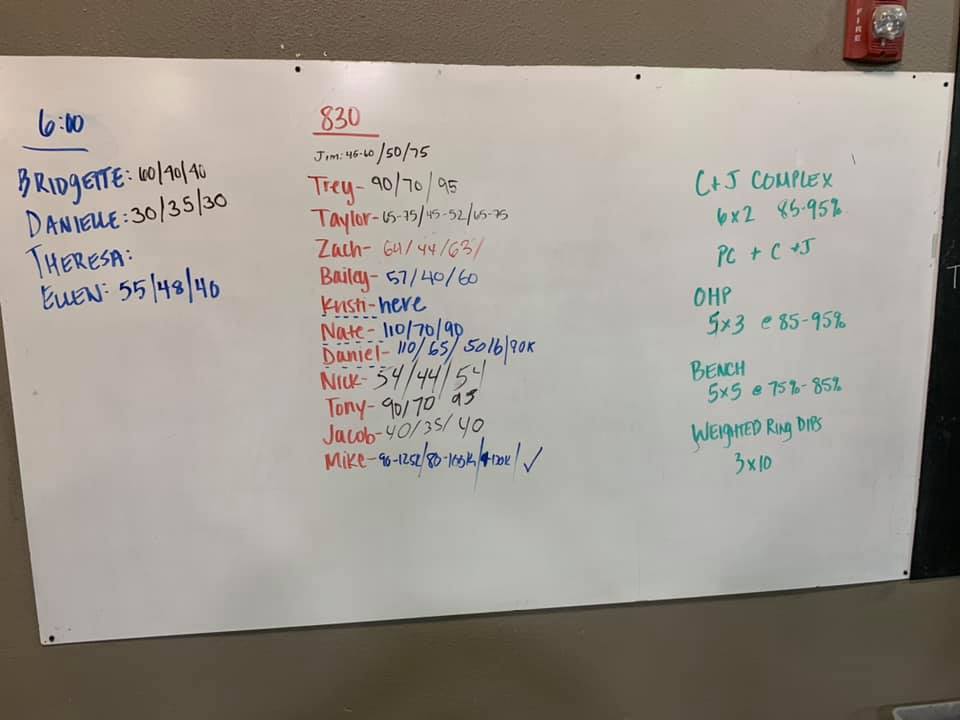 FIRE
6:00
BRIDGETTE: 60/40/40
DANIELLE: 30/35/30
THERESA:
ELLEN: 55/48/40
830
Jim: 45-60/50/75
Trey- 90/70/95
Taylor- 65-75/45-52/65-75
Zach- 64/44/63/
Bailey- 57/40/60
Kristi- here
Nate- 110/70/90
Daniel- 110/65/50lb/90K
Nick- 54/44/54
Tony- 90/70 95
Jacob- 40/35/40
Mike- 90-125K/80-100K/ 120K/ ✓
C+J COMPLEX
6x2 85-95%
PC + C +J
OHP
5x3 @ 85-95%
BENCH
5x5 @ 75%-85%
WEIGHTED Ring DIPS
3x10
T